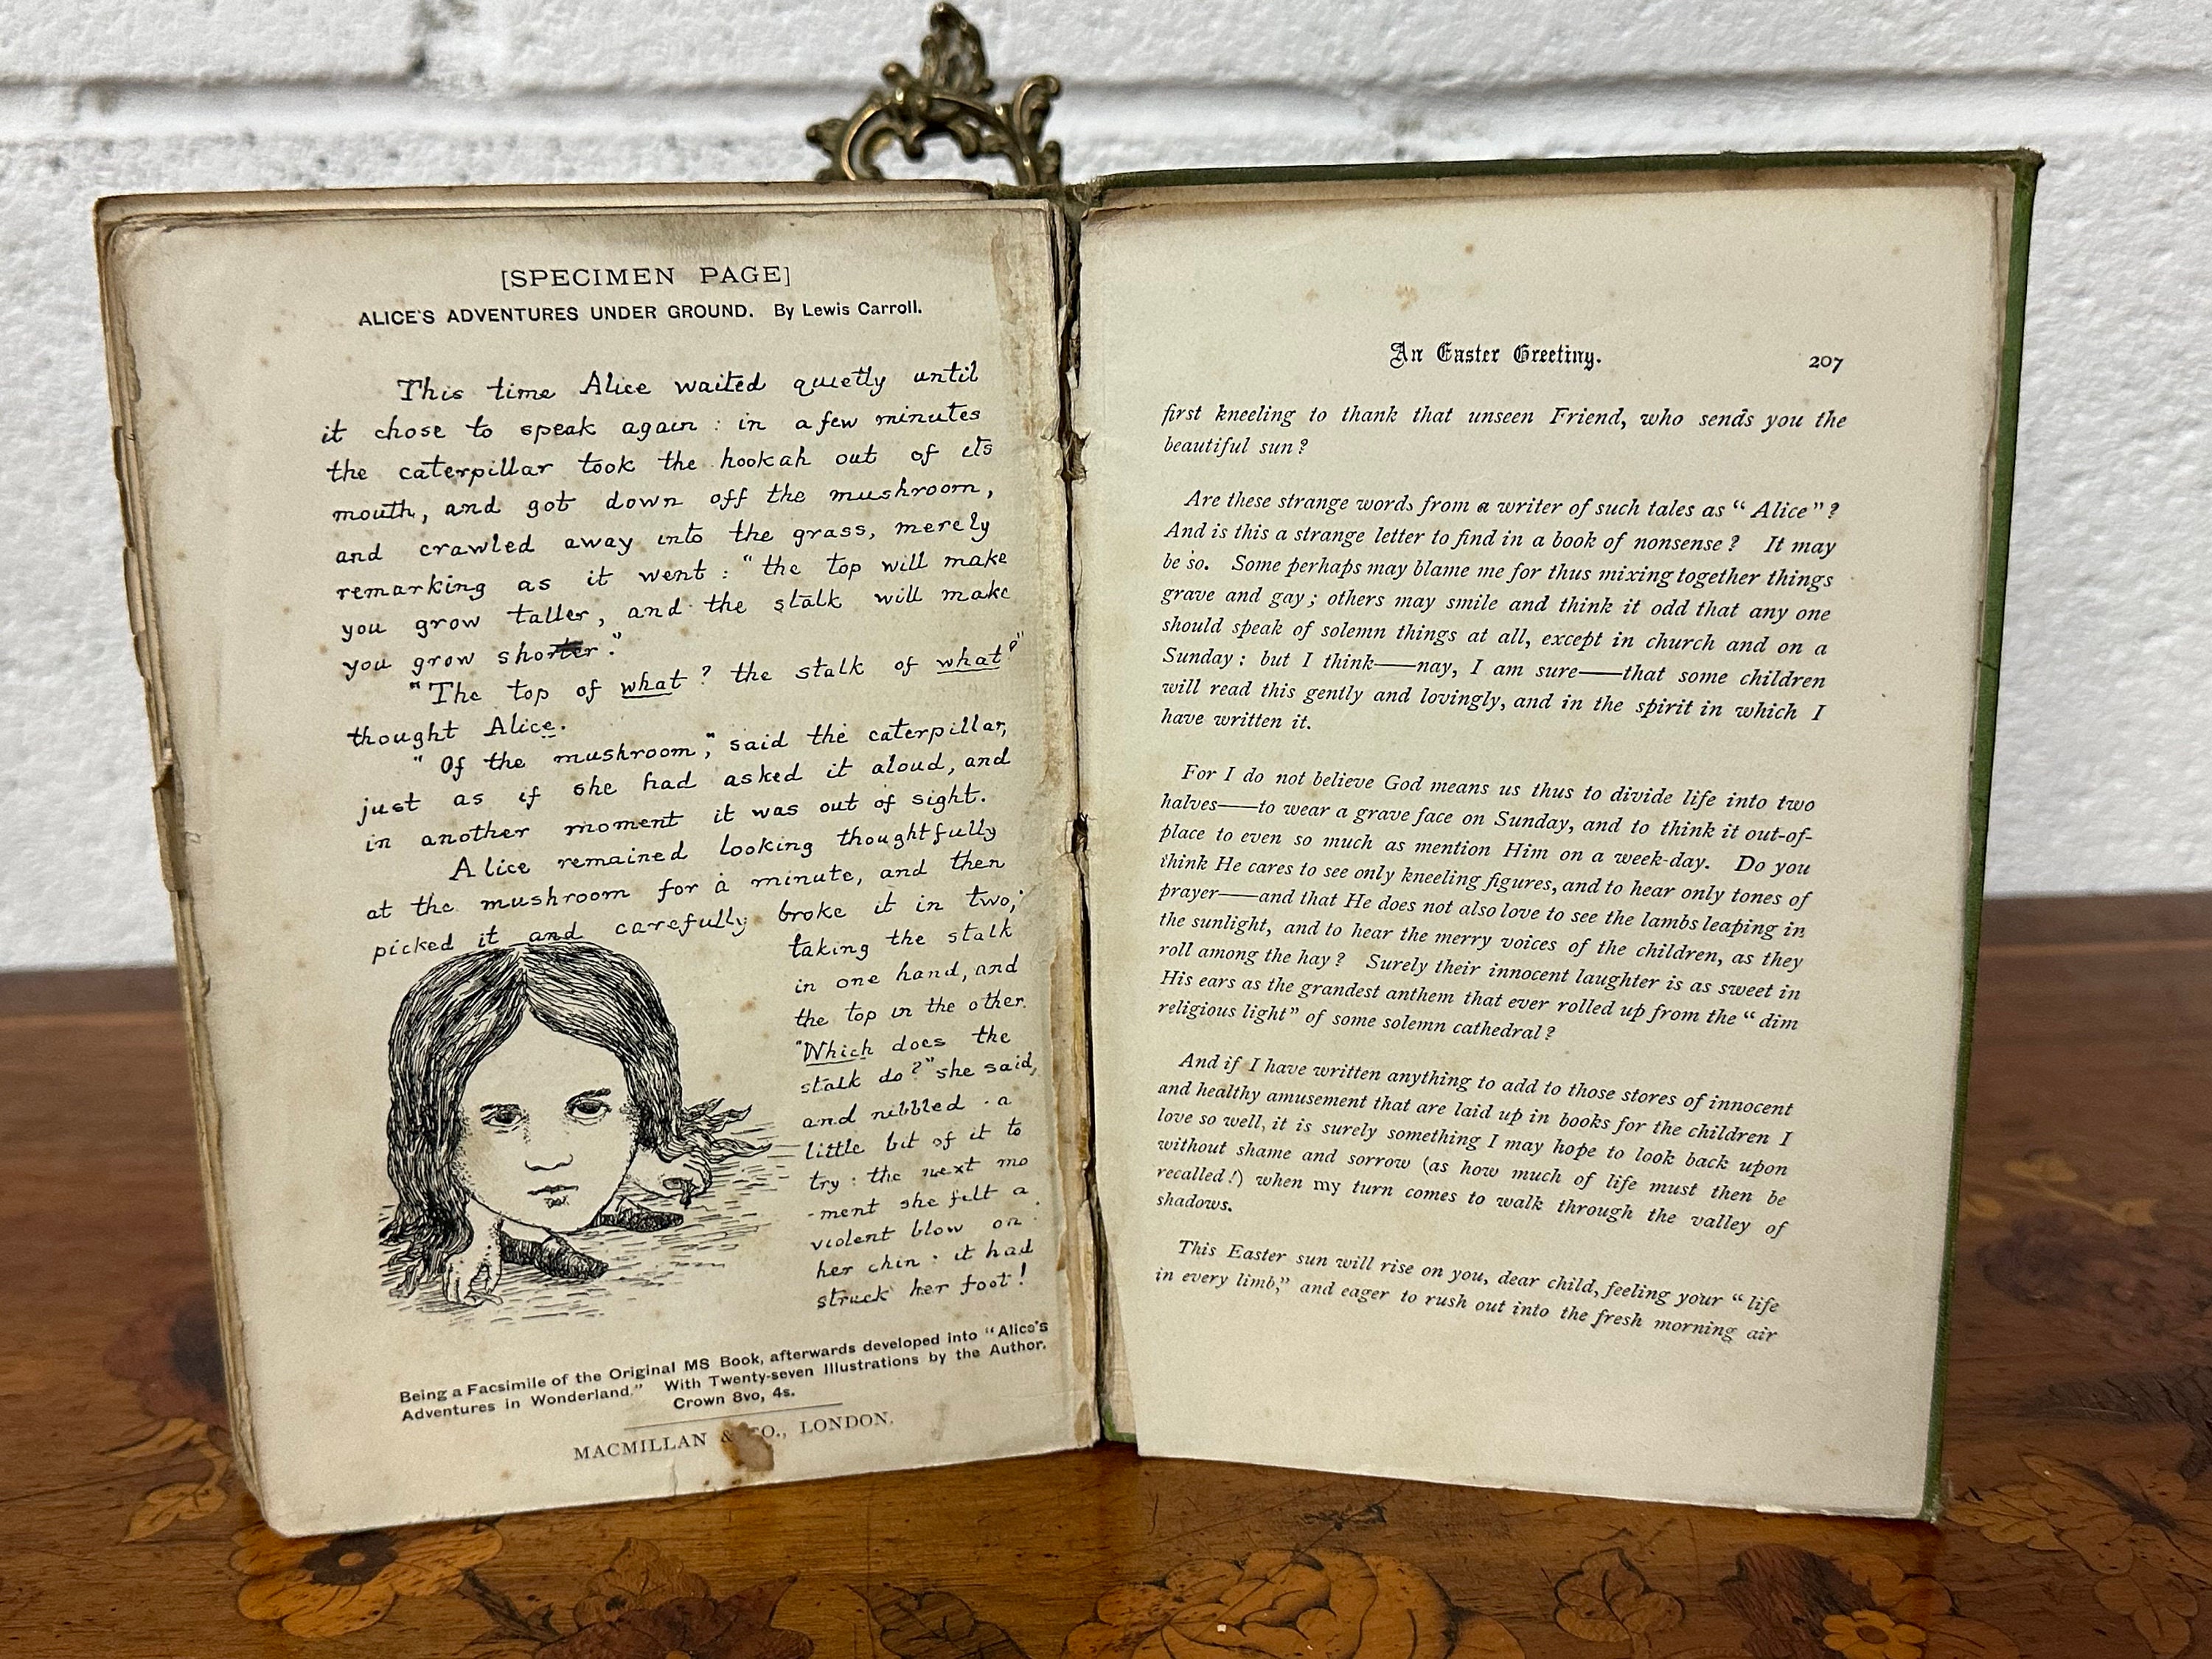 [SPECIMEN PAGE]
ALICE'S ADVENTURES UNDER GROUND. By Lewis Carroll.
This time Alice waited quietly until
it chose to speak again: in a few minutes
the caterpillar took the hookah out of its
mouth, and got down off the mushroom,
and crawled away into the grass, merely
remarking as it went: "the top will make
you grow taller, and the stalk will make
you grow shorter."
"The top of what? the stalk of what?"
thought Alice.
"Of the mushroom," said the caterpillar,
just as if she had asked it aloud, and
in another moment it was out of sight.
Alice remained looking thoughtfully
at the mushroom for a minute, and then
picked it and carefully broke it in two,
taking the stalk
in one hand, and
the top in the other.
"Which does the
stalk do?" she said,
and nibbled a
little bit of it to
try: the next mo
-ment she felt a
violent blow on
her chin: it had
struck her foot!
Being a Facsimile of the Original MS Book, afterwards developed into "Alice's
Adventures in Wonderland." With Twenty-seven Illustrations by the Author.
Crown 8vo, 4s.
MACMILLAN & CO., LONDON.
An Easter Greeting. 207
first kneeling to thank that unseen Friend, who sends you the
beautiful sun?
Are these strange words from a writer of such tales as "Alice"?
And is this a strange letter to find in a book of nonsense? It may
be so. Some perhaps may blame me for thus mixing together things
grave and gay; others may smile and think it odd that any one
should speak of solemn things at all, except in church and on a
Sunday: but I think——nay, I am sure——that some children
will read this gently and lovingly, and in the spirit in which I
have written it.
For I do not believe God means us thus to divide life into two
halves——to wear a grave face on Sunday, and to think it out-of-
place to even so much as mention Him on a week-day. Do you
think He cares to see only kneeling figures, and to hear only tones of
prayer——and that He does not also love to see the lambs leaping in
the sunlight, and to hear the merry voices of the children, as they
roll among the hay? Surely their innocent laughter is as sweet in
His ears as the grandest anthem that ever rolled up from the "dim
religious light" of some solemn cathedral?
And if I have written anything to add to those stores of innocent
and healthy amusement that are laid up in books for the children I
love so well, it is surely something I may hope to look back upon
without shame and sorrow (as how much of life must then be
recalled!) when my turn comes to walk through the valley of
shadows.
This Easter sun will rise on you, dear child, feeling your "life
in every limb," and eager to rush out into the fresh morning air